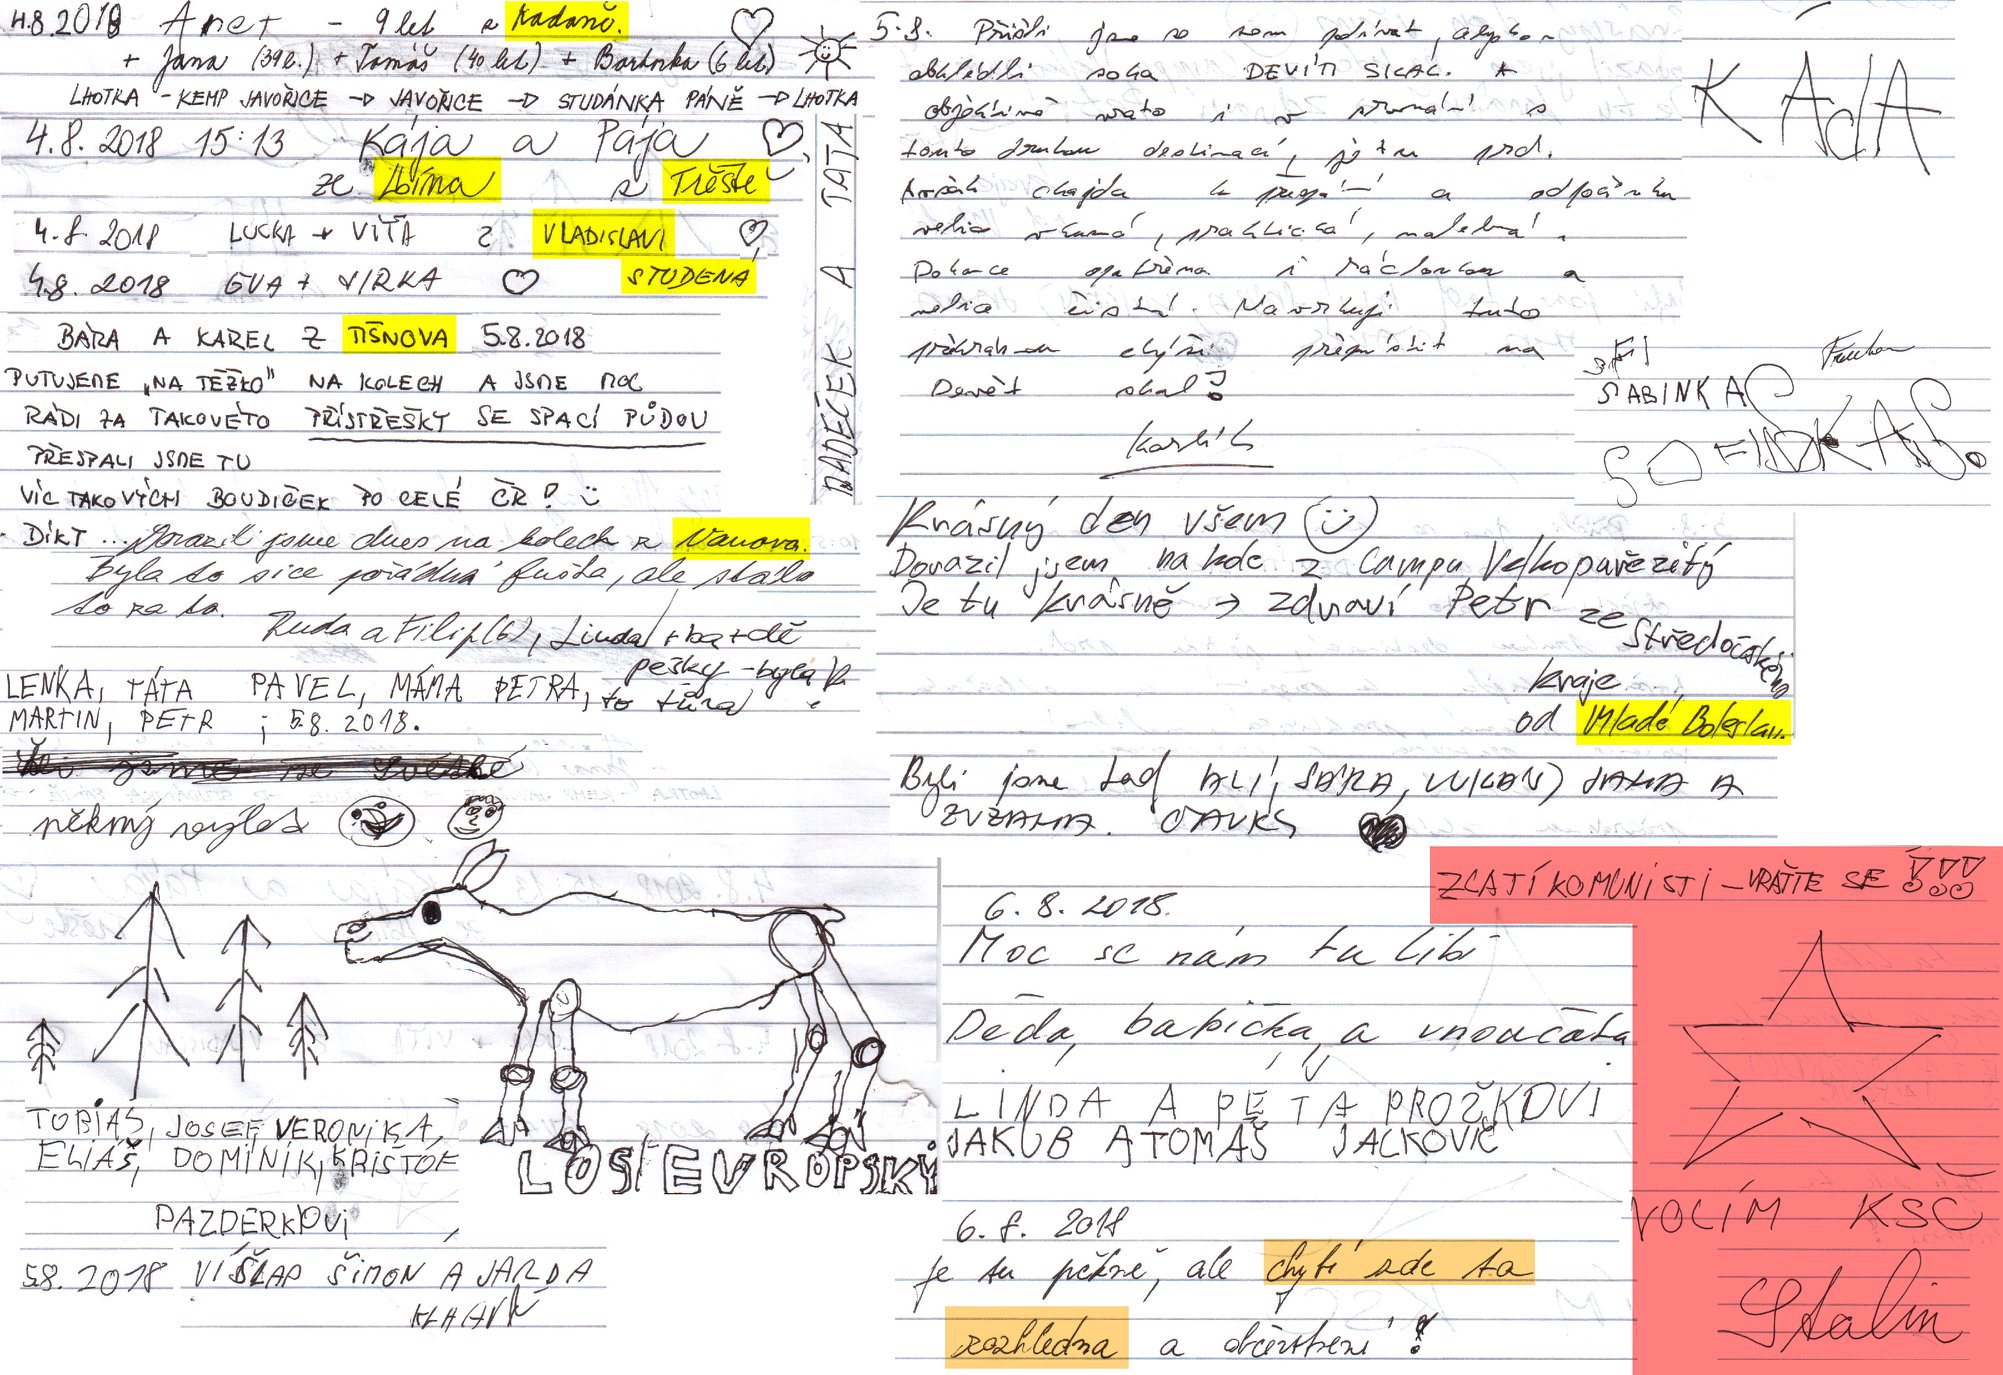 4.8.2018 Anet - 9 let z Kadaně.
+ Jana (39 l.) + Tomáš (40 let) + Barborka (6 let)
LHOTKA - KEMP JAVOŘICE → JAVOŘICE → STUDÁNKA PÁNĚ → LHOTKA
4.8.2018 15:13 Kája a Pája
ze Zlína z Třeště
4.8.2018 LUCKA + VÍŤA z VLADISLAVI
4.8.2018 EVA + JIRKA STUDENÁ
DĚDEČEK A TÁTA
BÁRA A KAREL Z TIŠNOVA 5.8.2018
PUTUJEME „NA TĚŽKO" NA KOLECH A JSME MOC
RÁDI ZA TAKOVÉTO PŘÍSTŘEŠKY SE SPACÍ PŮDOU
PŘESPALI JSME TU
VÍC TAKOVÝCH BOUDIČEK PO CELÉ ČR!
DÍKY ... Dorazili jsme dnes na kolech z Vanova.
Byla to sice pořádná fuška, ale stálo
to za to.
Ruda a Filip (6), Linda
pěšky - byla
to túra!
LENKA, TÁTA PAVEL, MÁMA PETRA,
MARTIN, PETR ; 5.8.2018.
jsme se
pěkný výlet
TOBIÁŠ, JOSEF, VERONIKA,
ELIÁŠ, DOMINIK, KRIŠTOF
PAZDERKOVI
5.8.2018 VÍŠLAP ŠIMON A JARDA
LOS EVROPSKÝ
5.8. Přišli jsme se sem podívat, abychom
obhlédli soka DEVÍTI SKAL.
objektivně v srovnání s
touto druhou destinací, je tu prd.
chajda k přespání a odpočinku
velice, praktická, malebná.
Dokonce opatřena i a
velice čistá. Navrhuji tuto
překrásnou chýši přemístit na
Devět skal!
Karlík
KÁdA
SABINKA
SOFINKA
Krásný den všem
Dorazil jsem na kole z Campu Velkopařezitý
Je tu krásně → zdraví Petr ze Středočeského
kraje
od Mladé Boleslavi.
Byli jsme tad ALÍ, SÁRA, JANA A
ZUZANA.
ZLATÍ KOMUNISTI – VRAŤTE SE!!!
6.8.2018.
Moc se nám tu líbí
Děda, babička, a vnoučata
LINDA A PÉŤA PROŽKOVI
JAKUB A TOMÁŠ JALKOVIČ
VOLÍM KSČ
Stalin
6.8.2018
Je tu pěkně, ale chybí zde ta
rozhledna a občerstvení!